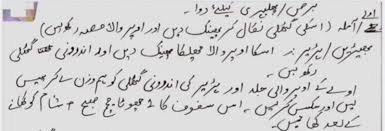 برص / پھلبہری کیلئے دوا۔
آملہ (اسکی گٹھلی نکال کر پھینک دیں اور اوپر والا حصہ رکھ لیں)
اسکا اوپر والا چھلکا پھینک دیں اور اندرونی
رکھ لیں۔
کے اوپر والی جلد اور کی اندرونی گٹھلی کو ہم وزن لے کر پیس
لیں اور مکس کر لیں۔ اس سفوف کا چھوٹا چمچ صبح + شام کھانے
کے بعد کھا لیں۔